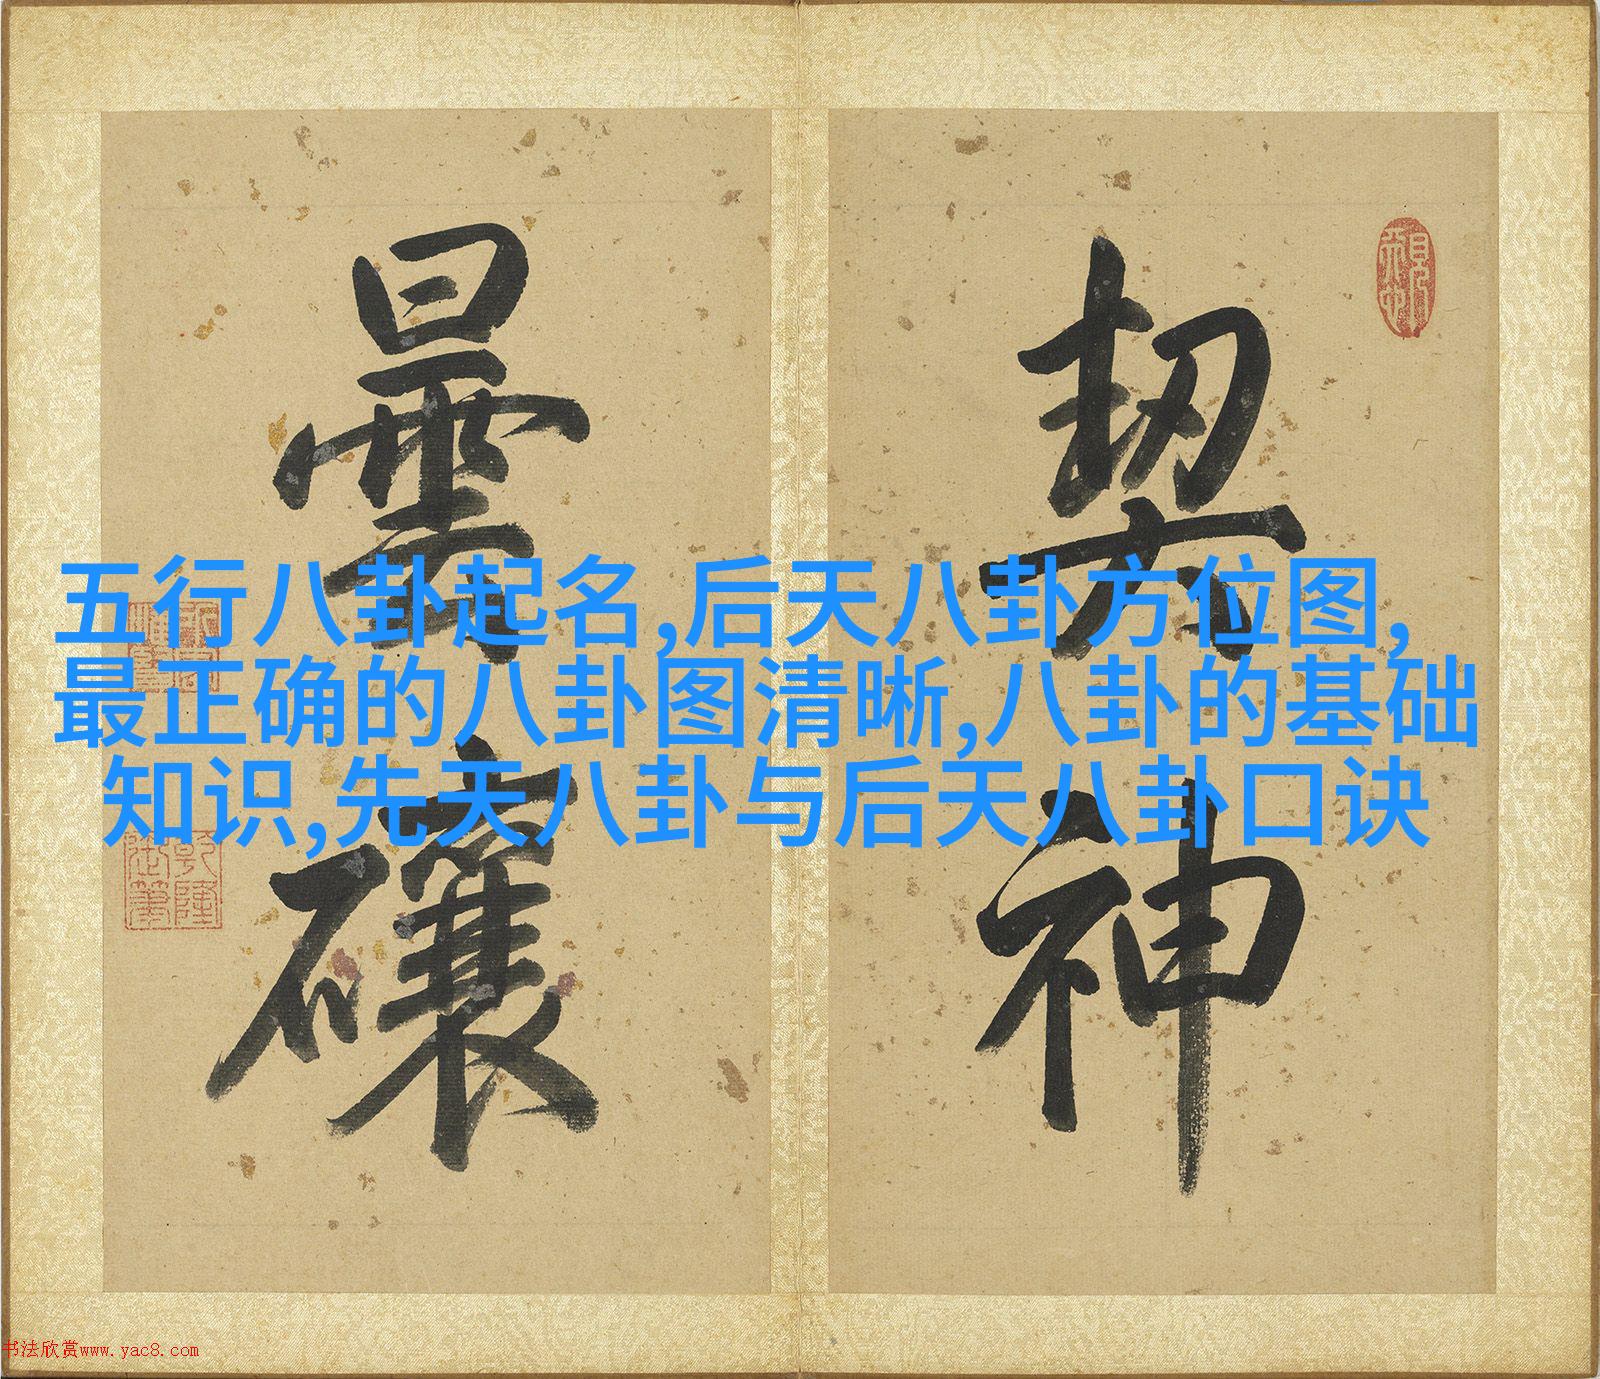 契神
曇礲
五行八卦起名,后天八卦方位图,
最正确的八卦图清晰,八卦的基础
知识,先天八卦与后天八卦口诀
乾隆
书法欣赏www.yac8.com